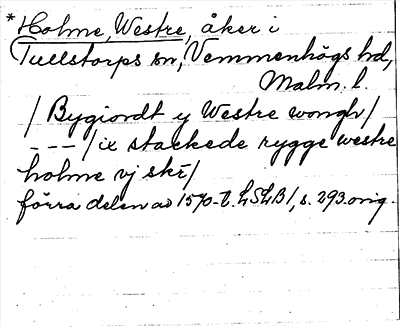 *Holme, Westre, åker i
Tullstorps sn, Vemmenhögs hd,
Malm. l.
/ Bygiordt y Westre wongh /
--- / ix stackede rygge westre
holme vj skr /
förra delen av 1570-t. LSLB 1, s. 293 orig.